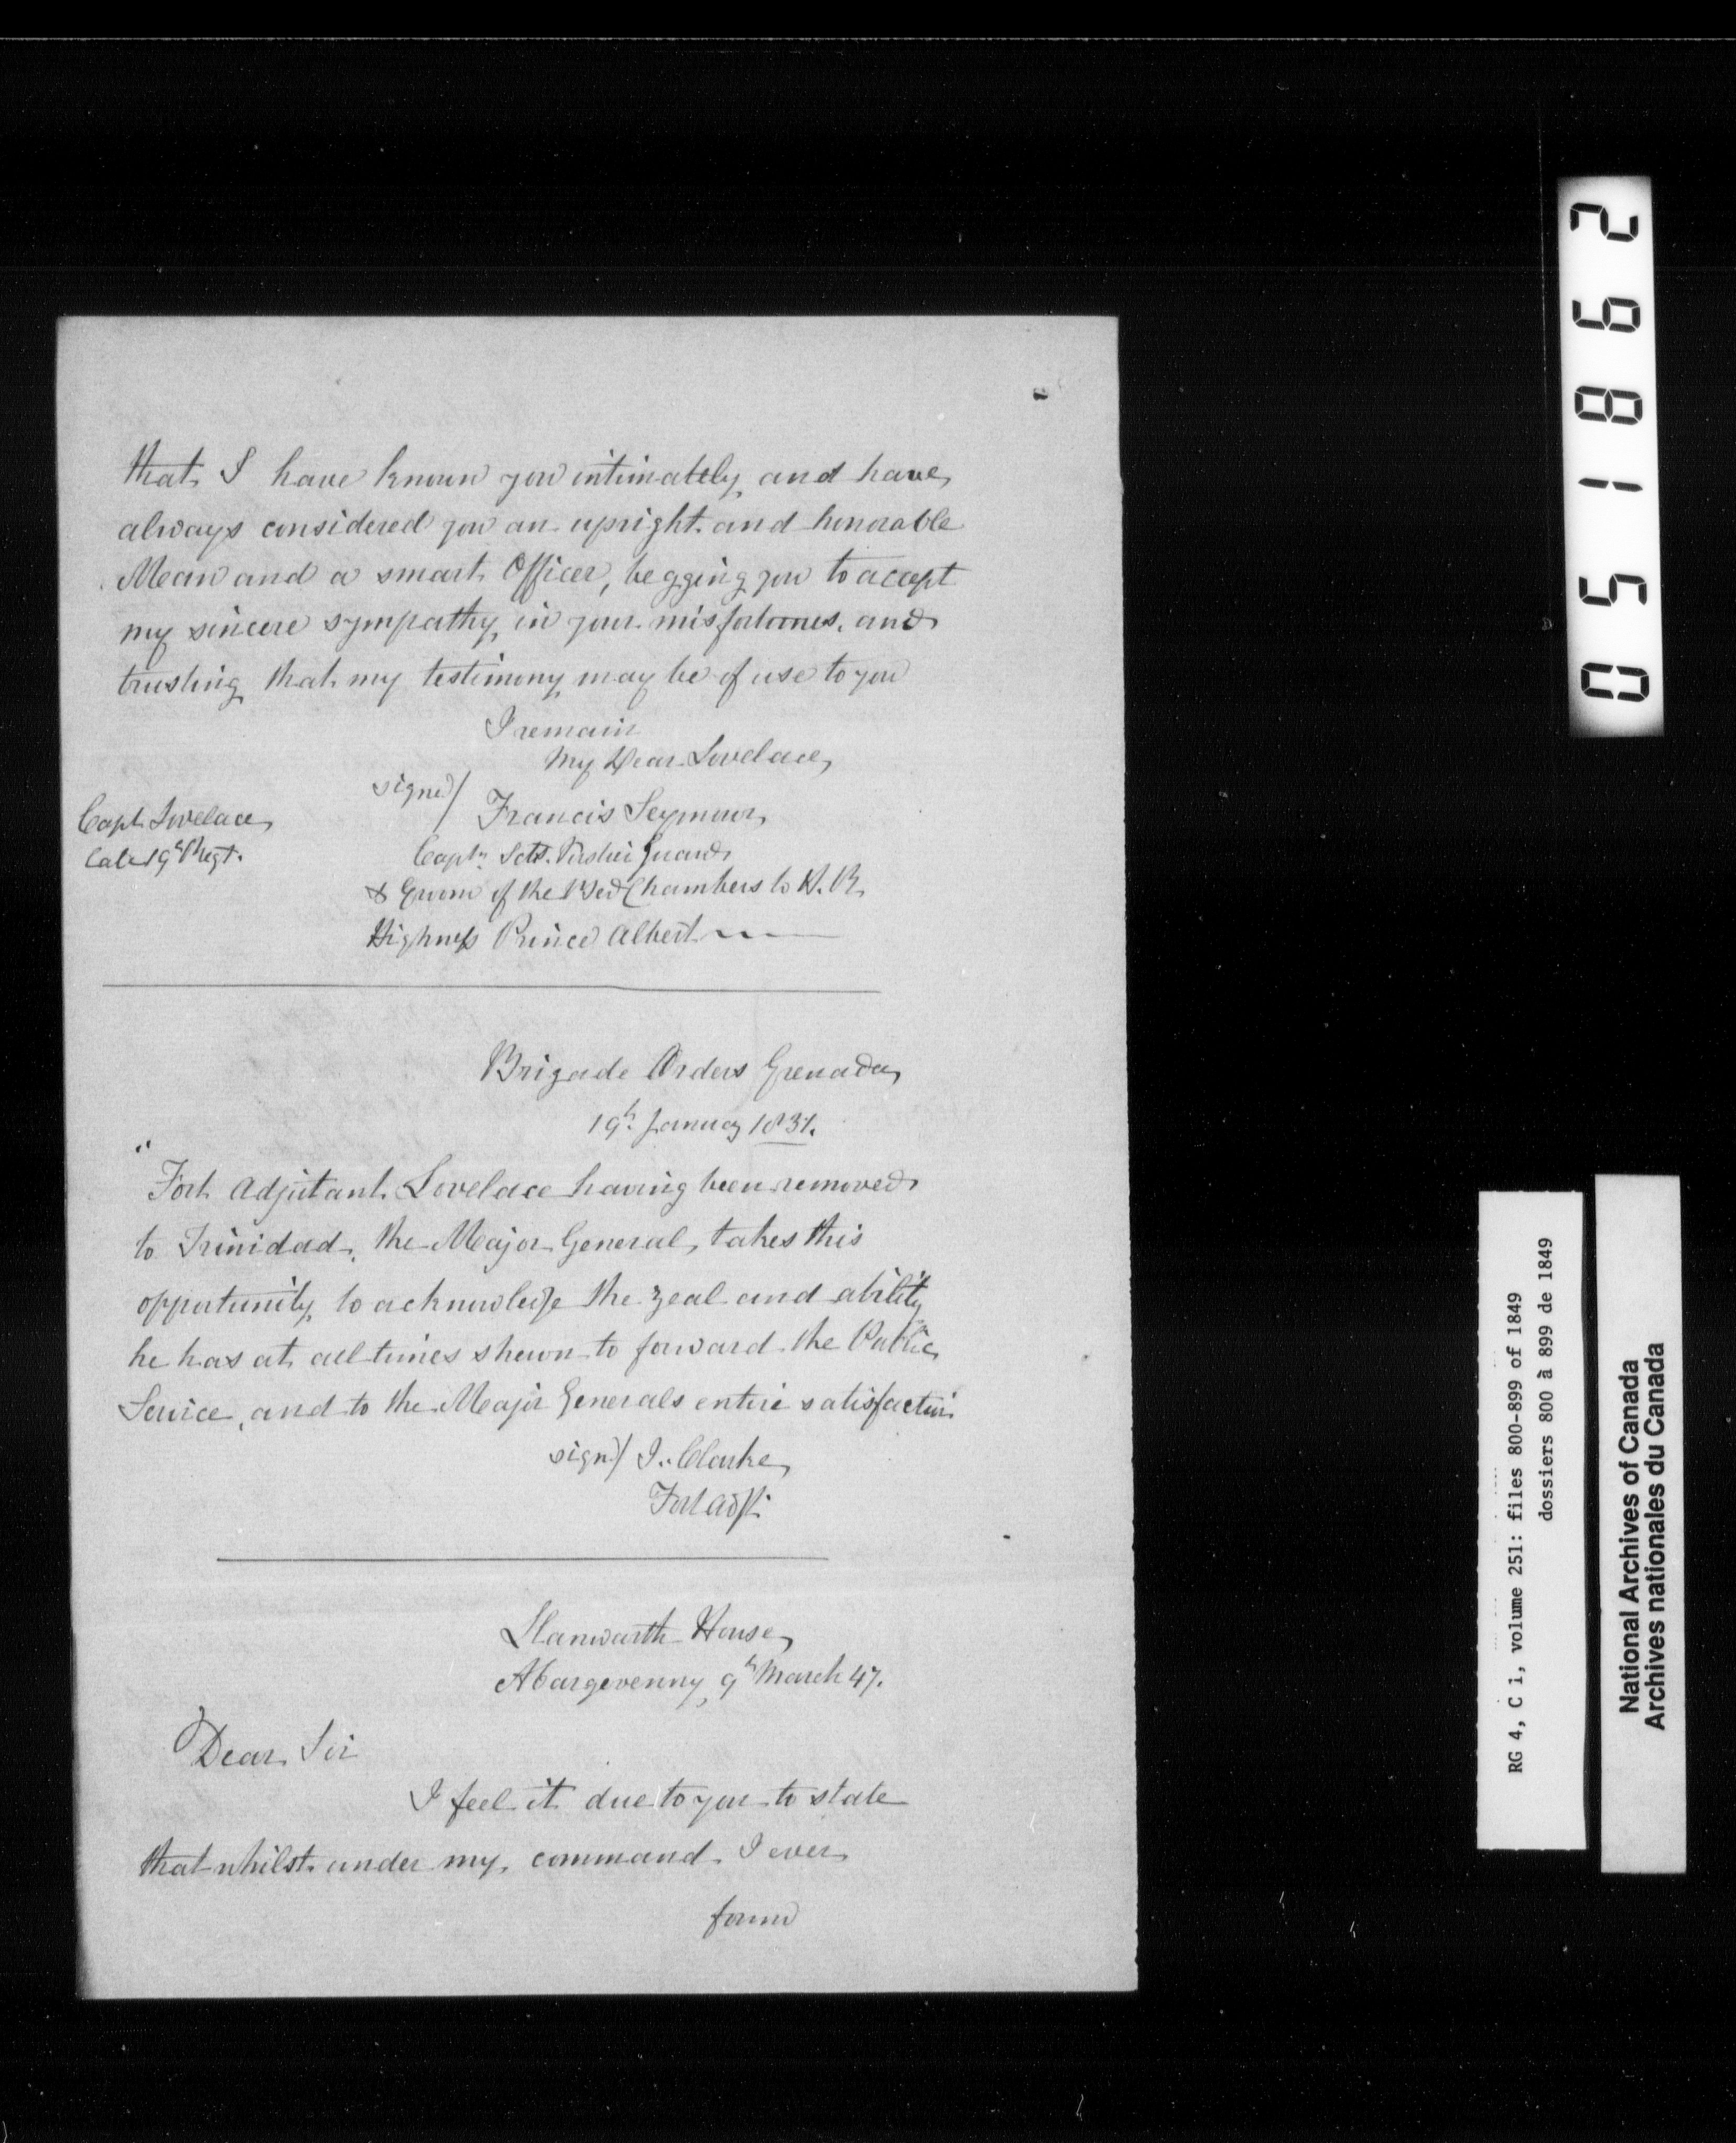 that I have known you intimately, and have
always considered you an upright and honorable
Man and a smart Officer, begging you to accept
my sincere sympathy in your misfortunes, and
trusting that my testimony may be of use to you
I remain
My Dear Lovelace,
signed/ Francis Seymour,
Capt Lovelace,
late 19th Regt.
Captn Scts. Fusilier Guards
& Groom of the Bed Chambers to H. R.
Highness Prince Albert
Brigade Orders Grenada,
19th January 1831.
"Fort Adjutant Lovelace having been removed
to Trinidad, the Major General, takes this
opportunity, to acknowledge the zeal and ability
he has at all times shewn to forward the Public
Service, and to the Major Generals entire satisfaction
sign/ J. Clarke,
Fort Adjt.
Llanwarth House,
Abargevenny, 9th March 47.
Dear Sir
I feel it due to you to state
that whilst under my command I ever
found
051862
RG 4, C 1, volume 251: files 800-899 of 1849
dossiers 800 à 899 de 1849
National Archives of Canada
Archives nationales du Canada